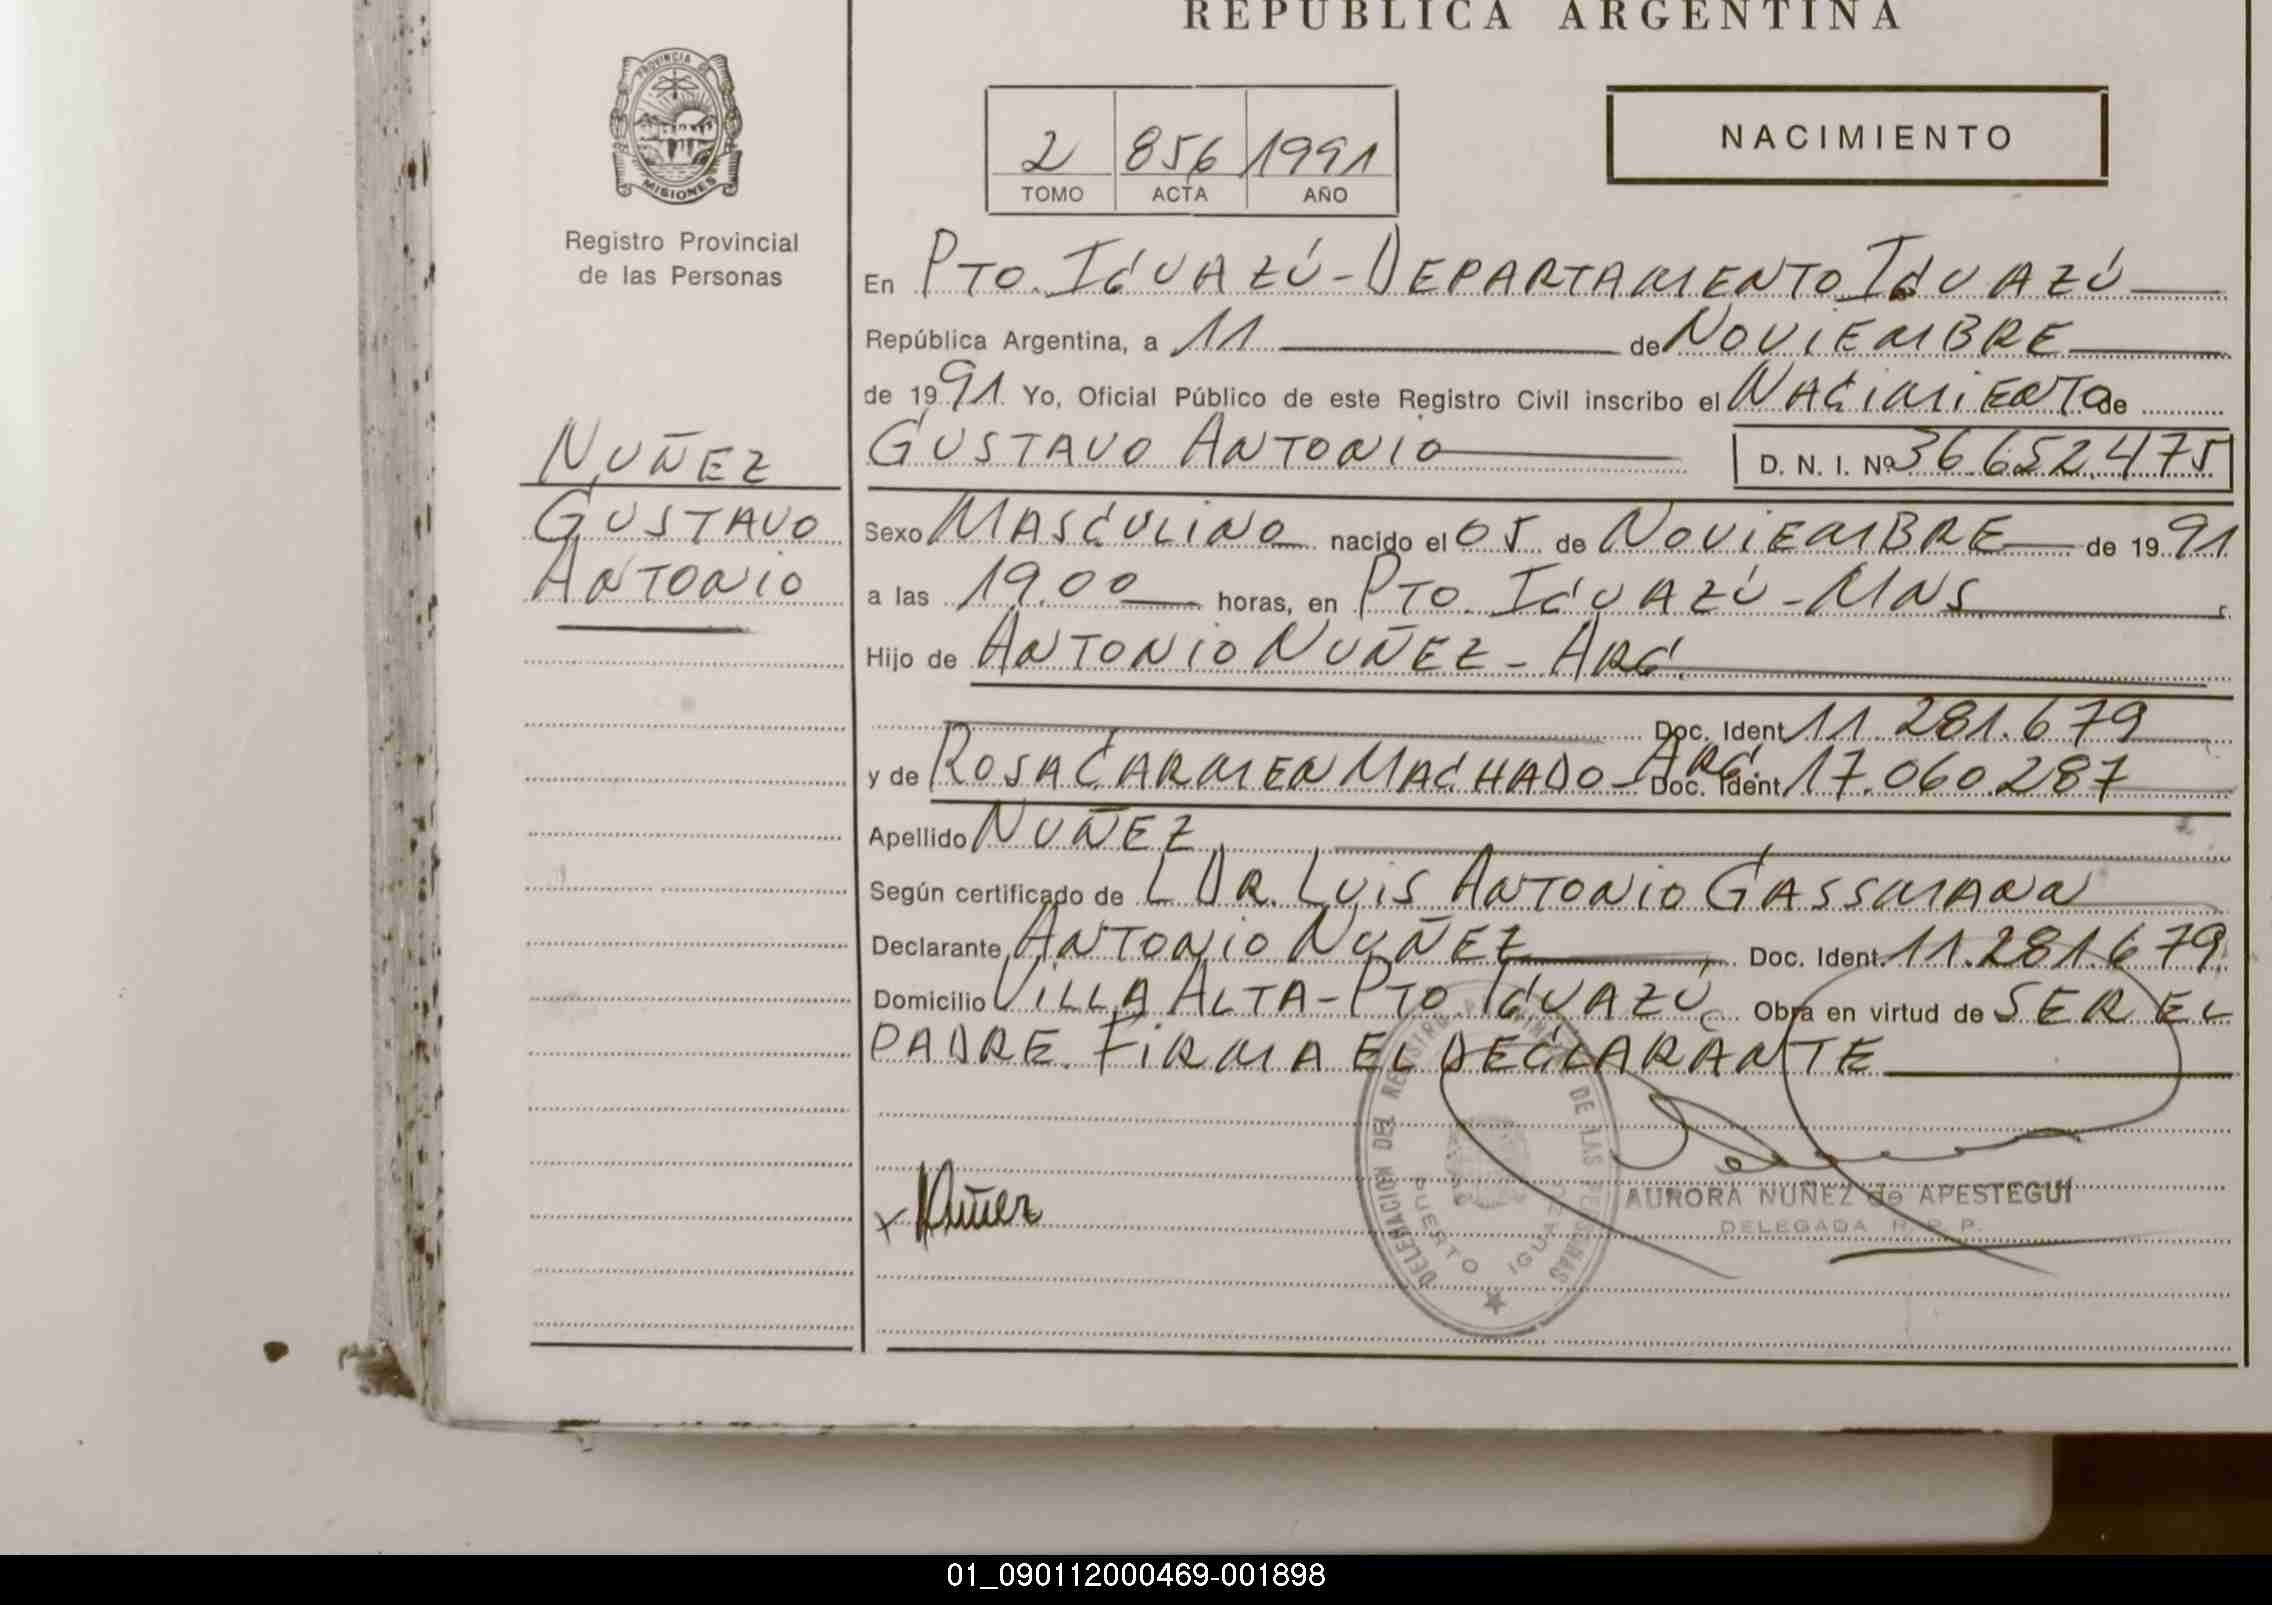 REPUBLICA ARGENTINA
PROVINCIA DE
MISIONES
Registro Provincial
de las Personas
2 856 1991
TOMO ACTA AÑO
NACIMIENTO
En PTO. IGUAZÚ - DEPARTAMENTO IGUAZÚ
República Argentina, a 11 de NOVIEMBRE
de 1991 Yo, Oficial Público de este Registro Civil inscribo el NACIMIENTO de
GUSTAVO ANTONIO D. N. I. Nº 36.652.475
NUÑEZ
GUSTAVO
ANTONIO
Sexo MASCULINO nacido el 05 de NOVIEMBRE de 1991
a las 19.00 horas, en PTO. IGUAZÚ - MNS
Hijo de ANTONIO NUÑEZ - ARG.
Doc. Ident. 11.281.679
y de ROSA CARMEN MACHADO - ARG. Doc. Ident. 17.060.287
Apellido NUÑEZ
Según certificado de L DR. LUIS ANTONIO GASSMANN
Declarante ANTONIO NUÑEZ Doc. Ident. 11.281.679
Domicilio VILLA ALTA - PTO. IGUAZÚ Obra en virtud de SER EL
PADRE. FIRMA EL DECLARANTE
DELEGACION DEL REGISTRO PROVINCIAL DE LAS PERSONAS
PUERTO IGUAZU
x Nuñez
AURORA NUÑEZ de APESTEGUI
DELEGADA R. P. P.
01_090112000469-001898